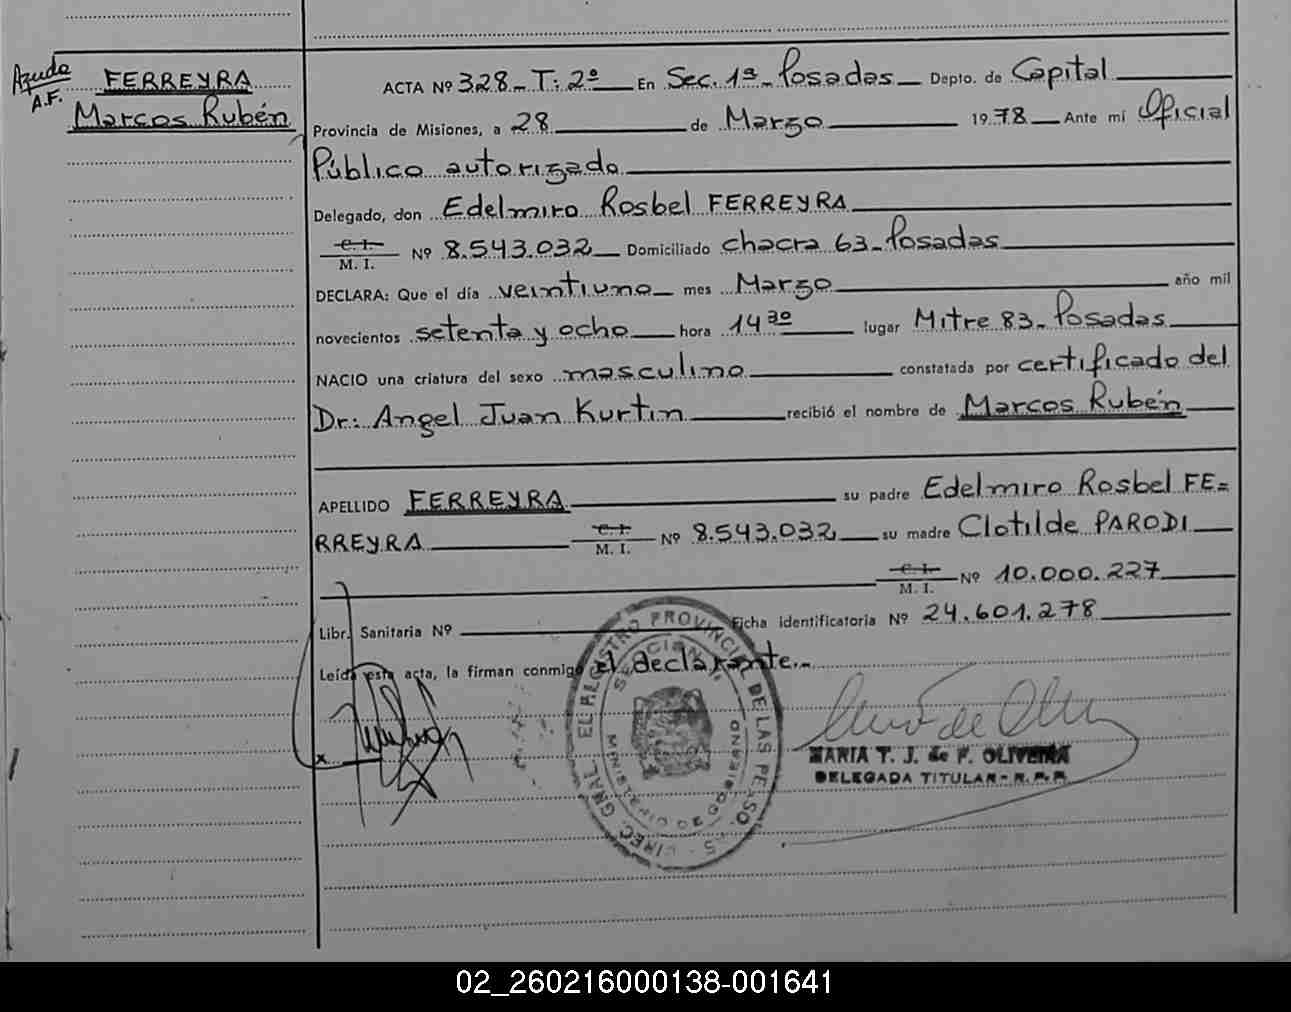 Ayuda
A.F.
FERREYRA
Marcos Rubén
ACTA Nº 328 - T: 2º En Sec. 1ª - Posadas Depto. de Capital
Provincia de Misiones, a 28 de Marzo 1978 Ante mí Oficial
Público autorizado
Delegado, don Edelmiro Rosbel FERREYRA
C. I.
M. I. Nº 8.543.032 Domiciliado chacra 63 - Posadas
DECLARA: Que el día veintiuno mes Marzo año mil
novecientos setenta y ocho hora 14 30 lugar Mitre 83 - Posadas
NACIO una criatura del sexo masculino constatada por certificado del
Dr: Angel Juan Kurtin recibió el nombre de Marcos Rubén
APELLIDO FERREYRA su padre Edelmiro Rosbel FE=
RREYRA C. I. M. I. Nº 8.543.032 su madre Clotilde PARODI
C. I. M. I. Nº 10.000.227
Libr. Sanitaria Nº Ficha identificatoria Nº 24.601.278
Leída esta acta, la firman conmigo el declarante.-
x
MARIA T. J. de P. OLIVEIRA
DELEGADA TITULAR - R. P. P.
02_260216000138-001641